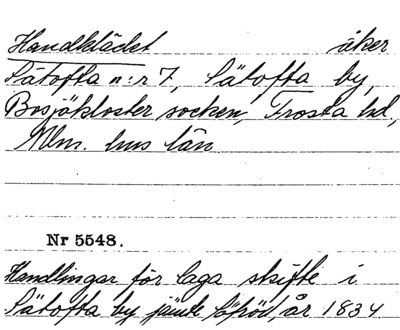 Handklädet åker
Sätofta n:r 7, Sätofta by,
Bosjökloster socken, Frosta hd,
Mlm. hus län.
Nr 5548.
Handlingar för laga skifte i
Sätofta by jämte Löfröd, år 1834.